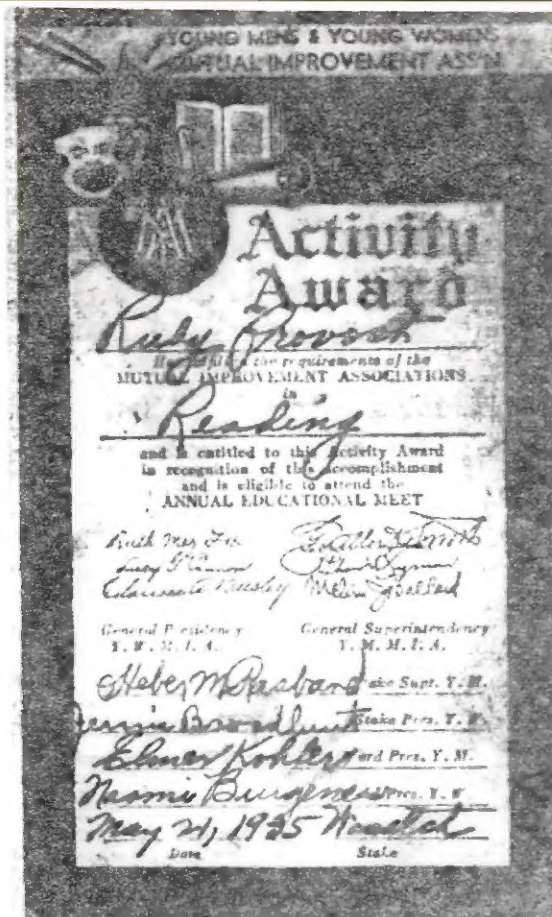 YOUNG MENS & YOUNG WOMENS
MUTUAL IMPROVEMENT ASS'N.
Activity
Award
Ruby Provost
the requirements of the
MUTUAL IMPROVEMENT ASSOCIATIONS
in
Reading
and is entitled to this Activity Award
in recognition of this accomplishment
and is eligible to attend the
ANNUAL EDUCATIONAL MEET
Ruth May Fox George Albert Smith
Lucy G. Cannon Richard R. Lyman
Clarissa Beesley Melvin J. Ballard
General Presidency General Superintendency
Y. W. M. I. A. Y. M. M. I. A.
Heber M Rasband Stake Supt. Y. M.
Jennie Broadbent Stake Pres. Y. W.
Elmer Kohler Ward Pres. Y. M.
Naomi Burgener Pres. Y. W.
May 21, 1935 Wasatch
Date Stake